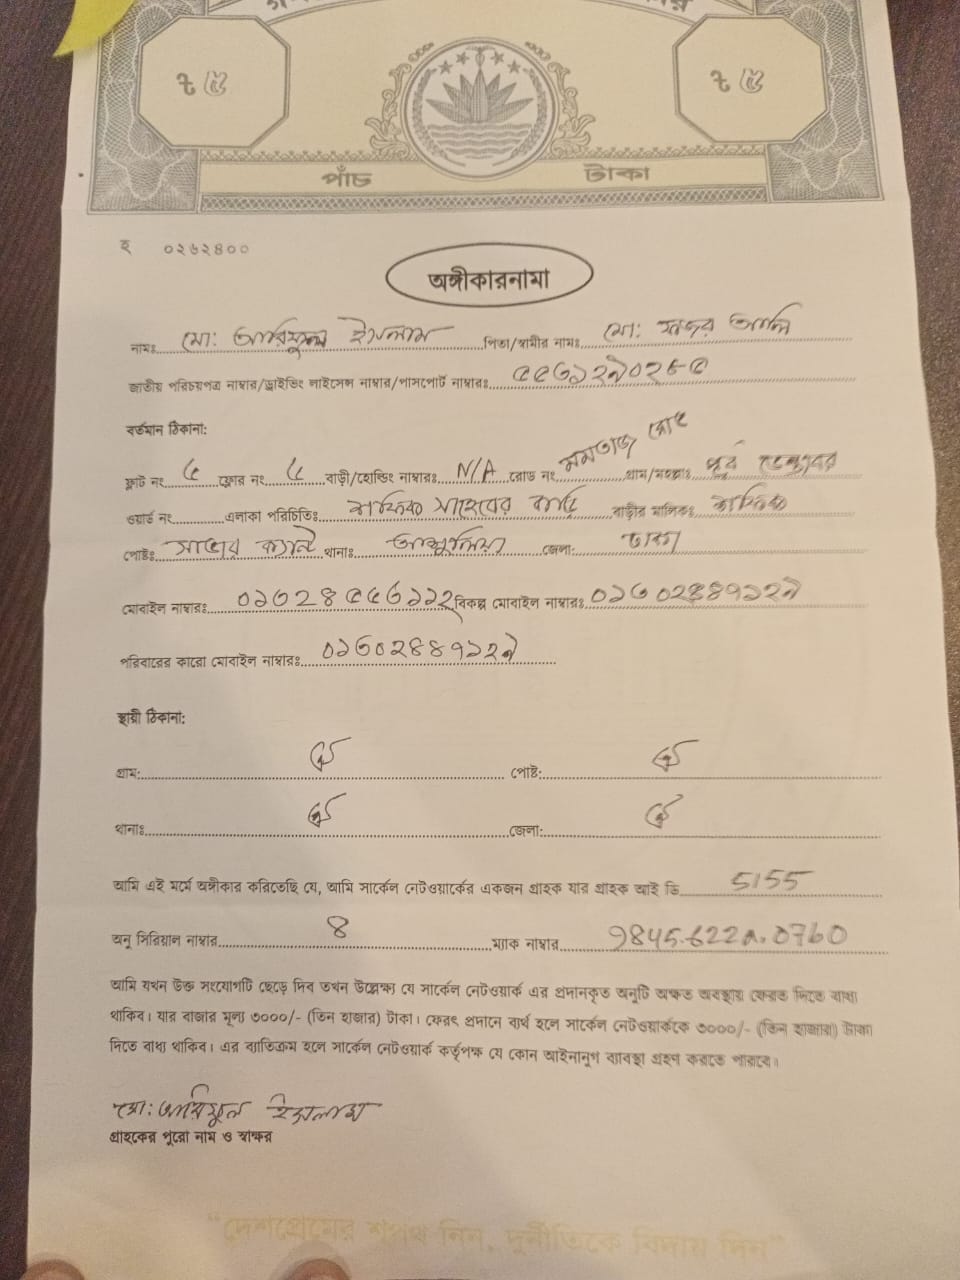 ৳ ৫ ৳ ৫
পাঁচ টাকা
হ ০২৬২৪০০
অঙ্গীকারনামা
নামঃ মো: আরিফুল ইসলাম পিতা/স্বামীর নামঃ মো: আলি
জাতীয় পরিচয়পত্র নাম্বার/ড্রাইভিং লাইসেন্স নাম্বার/পাসপোর্ট নাম্বারঃ
বর্তমান ঠিকানা:
ফ্লাট নং ৫ ফ্লোর নং ৫ বাড়ী/হোল্ডিং নাম্বারঃ N/A রোড নং মমতাজ রোড গ্রাম/মহল্লাঃ পূর্ব
ওয়ার্ড নং এলাকা পরিচিতিঃ সাহেবের বাড়ি বাড়ীর মালিকঃ
পোষ্টঃ সাভার ক্যান্ট থানাঃ আশুলিয়া জেলা: ঢাকা
মোবাইল নাম্বারঃ বিকল্প মোবাইল নাম্বারঃ
পরিবারের কারো মোবাইল নাম্বারঃ
স্থায়ী ঠিকানা:
গ্রাম: ঐ পোষ্ট: ঐ
থানাঃ ঐ জেলা: ঐ
আমি এই মর্মে অঙ্গীকার করিতেছি যে, আমি সার্কেল নেটওয়ার্কের একজন গ্রাহক যার গ্রাহক আই ডি 5155
অনু সিরিয়াল নাম্বার 8 ম্যাক নাম্বার
আমি যখন উক্ত সংযোগটি ছেড়ে দিব তখন উল্লেক্ষ্য যে সার্কেল নেটওয়ার্ক এর প্রদানকৃত অনুটি অক্ষত অবস্থায় ফেরত দিতে বাধ্য
থাকিব। যার বাজার মূল্য ৩০০০/- (তিন হাজার) টাকা। ফেরৎ প্রদানে ব্যর্থ হলে সার্কেল নেটওয়ার্ককে ৩০০০/- (তিন হাজার) টাকা
দিতে বাধ্য থাকিব। এর ব্যাতিক্রম হলে সার্কেল নেটওয়ার্ক কর্তৃপক্ষ যে কোন আইনানুগ ব্যাবস্থা গ্রহণ করতে পারবে।
মো: আরিফুল ইসলাম
গ্রাহকের পুরো নাম ও স্বাক্ষর
"দেশপ্রেমের শপথ নিন, দুর্নীতিকে বিদায় দিন"